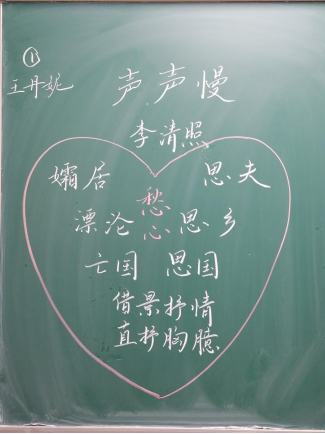 ①
王丹妮
声声慢
李清照
孀居 思夫
愁
漂沦 心 思乡
亡国 思国
借景抒情
直抒胸臆